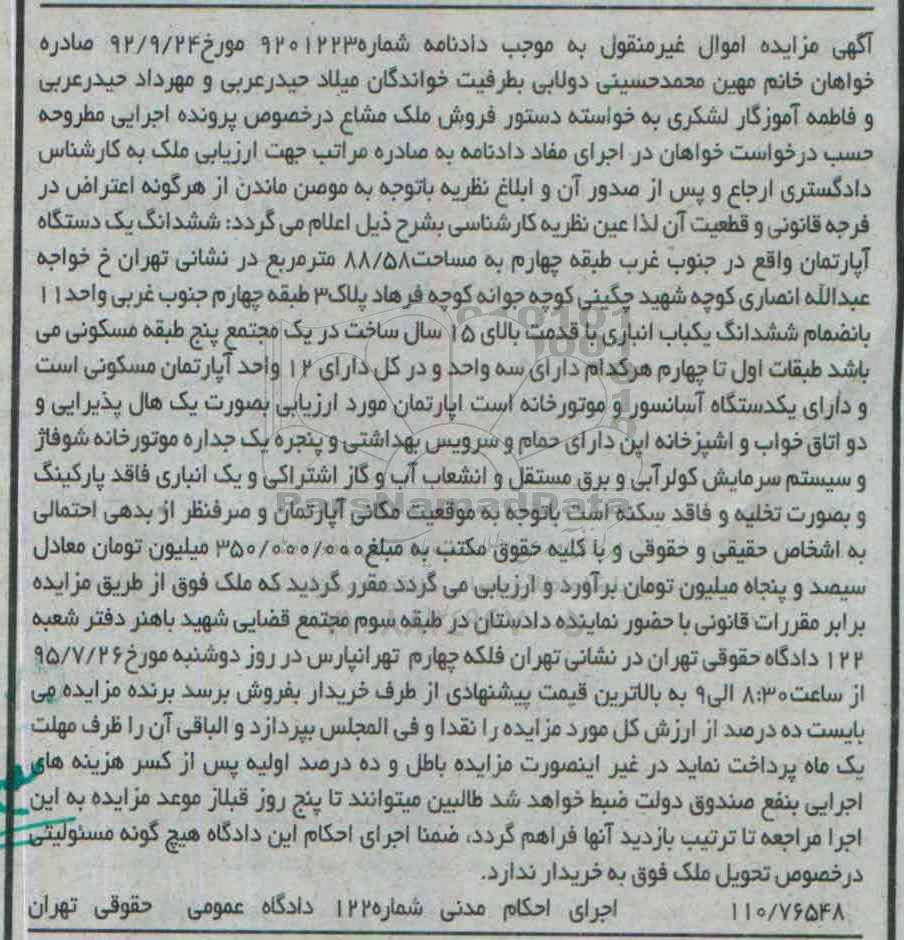 آگهی مزایده اموال غیرمنقول به موجب دادنامه شماره۹۲۰۱۲۲۳ مورخ۹۲/۹/۲۴ صادره
خواهان خانم مهین محمدحسینی دولابی بطرفیت خواندگان میلاد حیدرعربی و مهرداد حیدرعربی
و فاطمه آموزگار لشکری به خواسته دستور فروش ملک مشاع درخصوص پرونده اجرایی مطروحه
حسب درخواست خواهان در اجرای مفاد دادنامه به صادره مراتب جهت ارزیابی ملک به کارشناس
دادگستری ارجاع و پس از صدور آن و ابلاغ نظریه باتوجه به موصن ماندن از هرگونه اعتراض در
فرجه قانونی و قطعیت آن لذا عین نظریه کارشناسی بشرح ذیل اعلام می گردد: ششدانگ یک دستگاه
آپارتمان واقع در جنوب غرب طبقه چهارم به مساحت۸۸/۵۸ مترمربع در نشانی تهران خ خواجه
عبدالله انصاری کوچه شهید چگینی کوچه جوانه کوچه فرهاد پلاک۳ طبقه چهارم جنوب غربی واحد۱۱
بانضمام ششدانگ یکباب انباری با قدمت بالای ۱۵ سال ساخت در یک مجتمع پنج طبقه مسکونی می
باشد طبقات اول تا چهارم هرکدام دارای سه واحد و در کل دارای ۱۲ واحد آپارتمان مسکونی است
و دارای یکدستگاه آسانسور و موتورخانه است اپارتمان مورد ارزیابی بصورت یک هال پذیرایی و
دو اتاق خواب و اشپزخانه اپن دارای حمام و سرویس بهداشتی و پنجره یک جداره موتورخانه شوفاژ
و سیستم سرمایش کولرآبی و برق مستقل و انشعاب آب و گاز اشتراکی و یک انباری فاقد پارکینگ
ParsNamadData
و بصورت تخلیه و فاقد سکنه است باتوجه به موقعیت مکانی آپارتمان و صرفنظر از بدهی احتمالی
به اشخاص حقیقی و حقوقی و با کلیه حقوق مکتب به مبلغ۳۵۰/۰۰۰/۰۰۰ میلیون تومان معادل
سیصد و پنجاه میلیون تومان برآورد و ارزیابی می گردد مقرر گردید که ملک فوق از طریق مزایده
برابر مقررات قانونی با حضور نماینده دادستان در طبقه سوم مجتمع قضایی شهید باهنر دفتر شعبه
۱۲۲ دادگاه حقوقی تهران در نشانی تهران فلکه چهارم تهرانپارس در روز دوشنبه مورخ۹۵/۷/۲۶
از ساعت۸:۳۰ الی۹ به بالاترین قیمت پیشنهادی از طرف خریدار بفروش برسد برنده مزایده می
بایست ده درصد از ارزش کل مورد مزایده را نقدا و فی المجلس بپردازد و الباقی آن را ظرف مهلت
یک ماه پرداخت نماید در غیر اینصورت مزایده باطل و ده درصد اولیه پس از کسر هزینه های
اجرایی بنفع صندوق دولت ضبط خواهد شد طالبین میتوانند تا پنج روز قبلاز موعد مزایده به این
اجرا مراجعه تا ترتیب بازدید آنها فراهم گردد، ضمنا اجرای احکام این دادگاه هیچ گونه مسئولیتی
درخصوص تحویل ملک فوق به خریدار ندارد.
۱۱۰/۷۶۵۴۸ اجرای احکام مدنی شماره۱۲۲ دادگاه عمومی حقوقی تهران